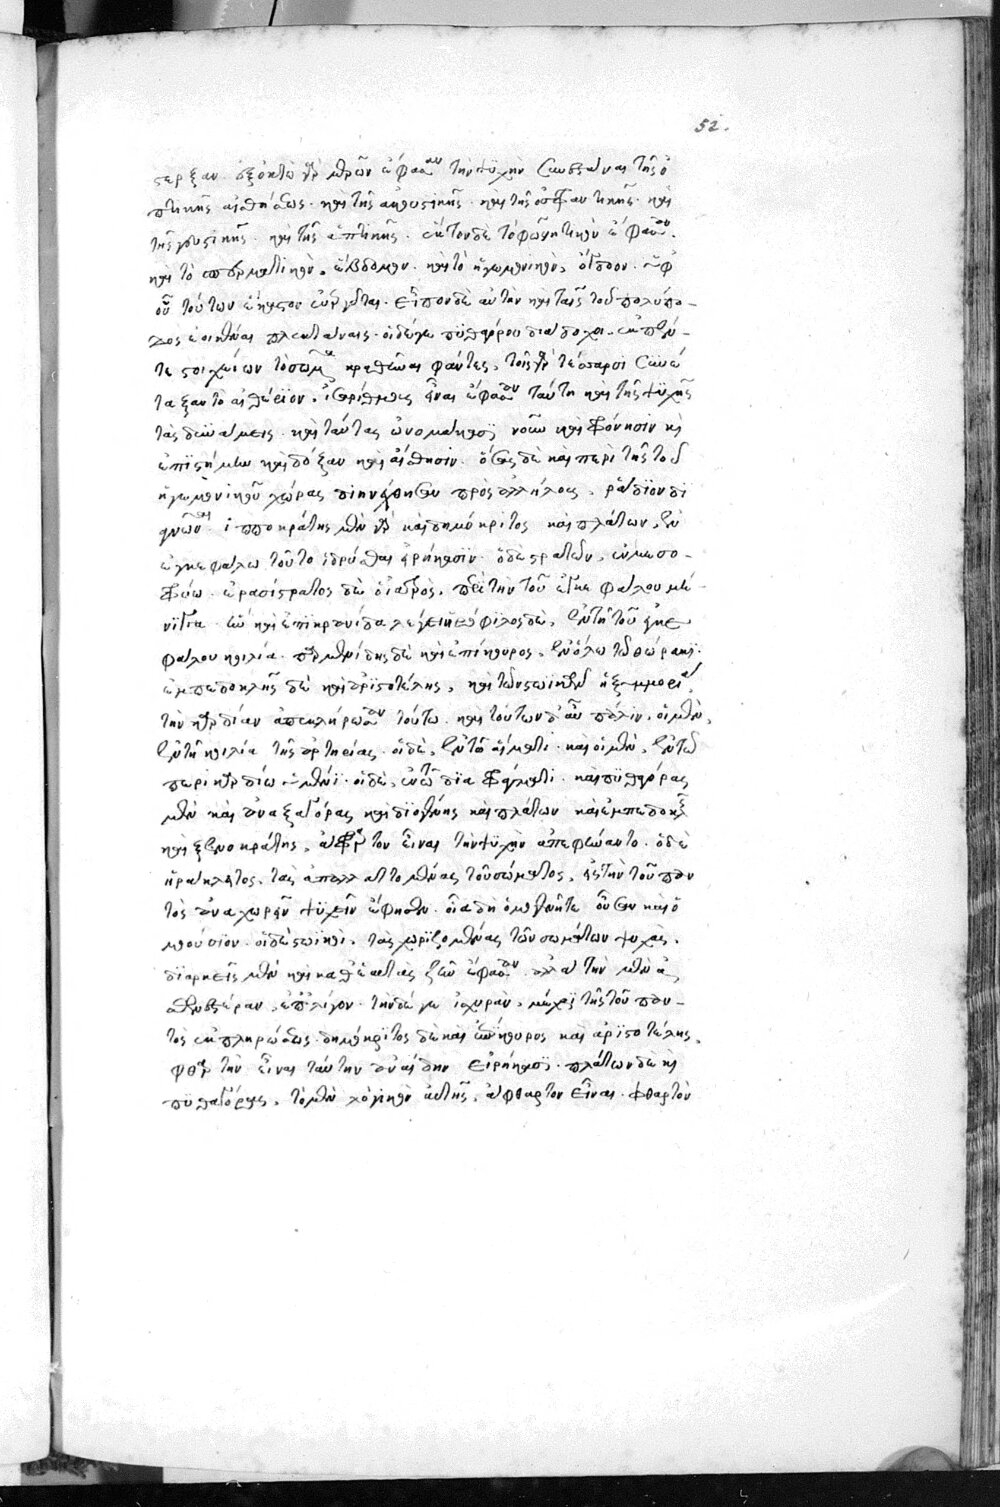 52.
τερξαν. ἐξ ὀκτὼ γὰρ μερῶν ἔφασαν τὴν ψυχὴν συνεστάναι τῆς ὀ
πτικῆς αἰσθήσεως. καὶ τῆς ἀκουστικῆς. καὶ τῆς ὀσφραντικῆς. καὶ
τῆς γευστικῆς. καὶ τῆς ἁπτικῆς. ἕκτον δὲ τὸ φωνητικὸν ἔφασαν.
καὶ τὸ σπερματικὸν, ἕβδομον. καὶ τὸ ἡγεμονικὸν, ὄγδοον. ὑφ
οὗ τούτων ἕκαστον ἐνεργεῖται. εἶπον δὲ αὐτὸν καὶ ταῖς τοῦ πολύπο-
δος ἐοικέναι πλεκτάναις. οἱ δέ γε πυθαγόρου διάδοχοι. ἐκ πέν-
τε στοιχείων τὸ σῶμα κραθῆναι φάντες, τοῖς γὰρ τέσσαρσι συνέ
ταξαν τὸ αἰθέριον. ἰσαρίθμους εἶναι ἔφασαν ταύτῃ καὶ τῆς ψυχῆς
τὰς δυνάμεις. καὶ ταύτας ὠνομάκασι νοῦν καὶ φρόνησιν κὶ
ἐπιστήμην καὶ δόξαν καὶ αἴσθησιν. ὅσοις δὲ καὶ περὶ τῆς τοῦ
ἡγεμονικοῦ χώρας διηνέχθησαν πρὸς ἀλλήλους. ῥάδιον δι
γνῶναι. ἱπποκράτης μὲν γὰρ καὶ δημόκριτος καὶ πλάτων, ἐν
ἐγκεφάλῳ τοῦτο ἱδρύσθαι εἰρήκασιν. ὁ δὲ στράτων, ἐν μεσο-
φρύῳ. ἐρασίστρατος δὲ ὁ ἰατρὸς, περὶ τὴν τοῦ ἐγκεφάλου μή-
νιγγα. ἣν καὶ ἐπικρανίδα λέγει. ἡρόφιλος δὲ, ἐν τῇ τοῦ ἐγκε
φάλου κοιλίᾳ. παρμενίδης δὲ καὶ ἐπίκουρος, ἐν ὅλῳ τῷ θώρακι.
ἐμπεδοκλῆς δὲ καὶ ἀριστοτέλης, καὶ τῶν στωικῶν ἡ ξυμμορία,
τὴν καρδίαν ἀπεκλήρωσαν τούτῳ. καὶ τούτων δ' αὖ πάλιν, οἱ μὲν,
ἐν τῇ κοιλίᾳ τῆς ἀρτηρίας. οἱ δὲ, ἐν τῷ αἵματι. καὶ οἱ μὲν, ἐν τῷ
περικαρδίῳ ὑμένι. οἱ δὲ, ἐν τῷ διαφράγματι. καὶ πυθαγόρας
μὲν καὶ ἀναξαγόρας καὶ διογένης καὶ πλάτων καὶ ἐμπεδοκλῆς
καὶ ξενοκράτης, ἄφθαρτον εἶναι τὴν ψυχὴν ἀπεφήναντο. ὁ δὲ
ἡράκλειτος. τὰς ἀπαλλαττομένας τοῦ σώματος, εἰς τὴν τοῦ παν
τὸς ἀναχωρεῖν ψυχὴν ἔφησεν. οἷα δὴ ὁμογενῆ τε οὖσαν καὶ ὁ
μοούσιον. οἱ δὲ στωικοὶ. τὰς χωριζομένας τῶν σωμάτων ψυχὰς.
διαρκεῖν μὲν καὶ καθ' ἑαυτὰς ζῆν ἔφασαν. ἀλλὰ τὴν μὲν ἀ
σθενεστέραν, ἐπ' ὀλίγον. τὴν δέ γε ἰσχυρὰν, μέχρι τῆς τοῦ παν-
τὸς ἐκπυρώσεως. δημόκριτος δὲ καὶ ἐπίκουρος καὶ ἀριστοτέλης,
φθαρτὴν εἶναι ταύτην ἀναίδην εἰρήκασι. πλάτων δὲ κὶ
πυθαγόρας, τὸ μὲν λογικὸν αὐτῆς, ἄφθαρτον εἶναι. φθαρτὸν